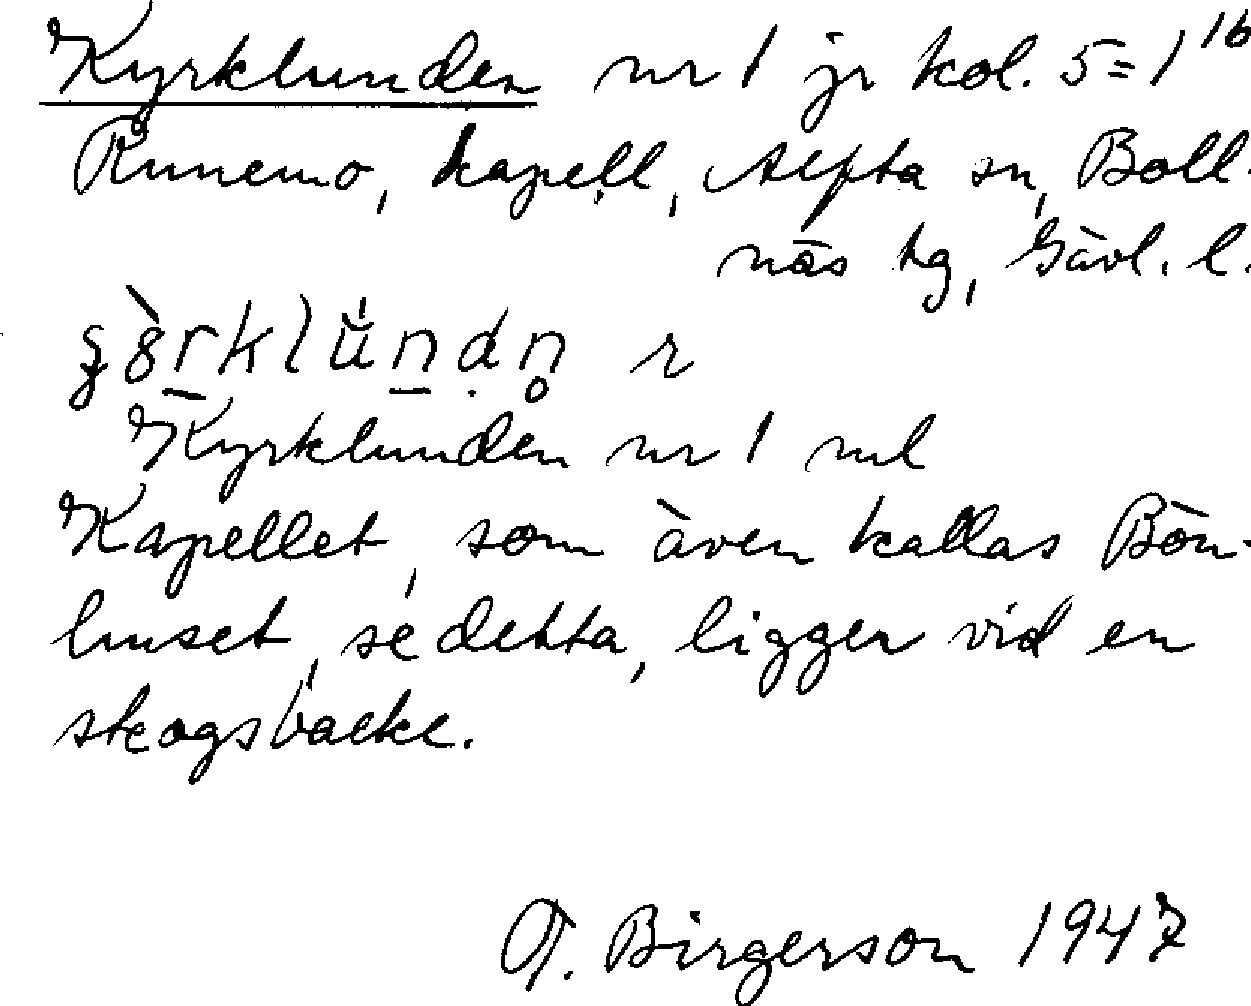 Kyrklunden nr 1 jr kol. 5=1¹⁶
Runemo, kapell, Alfta sn, Boll-
näs tg, Gävl. l.
r
Kyrklunden nr 1 ml
Kapellet, som även kallas Bön-
huset, se detta, ligger vid en
skogsbacke.
T. Birgerson 1947